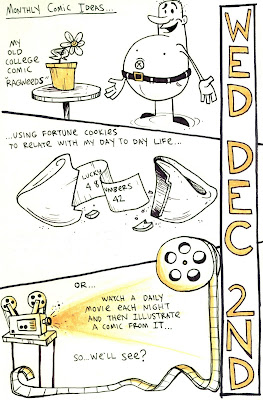 MONTHLY COMIC IDEAS...
MY
OLD
COLLEGE
COMIC
"RAGWEEDS"
...USING FORTUNE COOKIES
TO RELATE WITH MY DAY TO DAY LIFE...
LUCKY NUMBERS
4 8 42
OR...
WATCH A DAILY
MOVIE EACH NIGHT
AND THEN ILLUSTRATE
A COMIC FROM IT...
SO...WE'LL SEE?
WED DEC 2ND